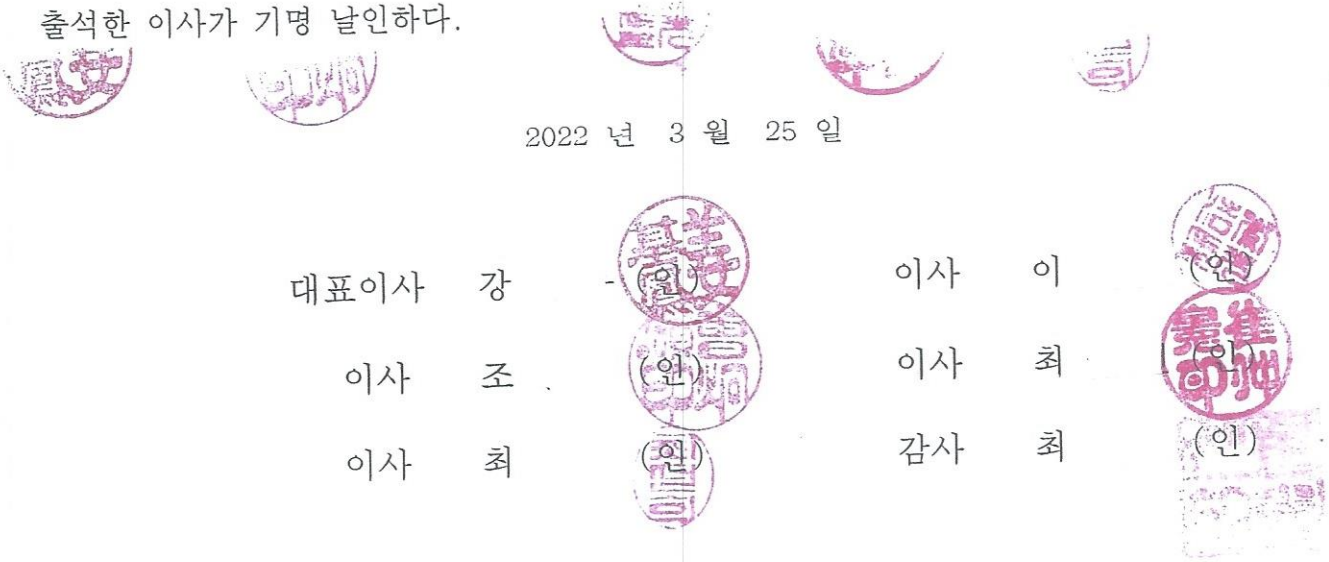 출석한 이사가 기명 날인하다.
2022 년 3 월 25 일
대표이사 강 - (인) 이사 이 (인)
이사 조 . (인) 이사 최 (인)
이사 최 (인) 감사 최 (인)